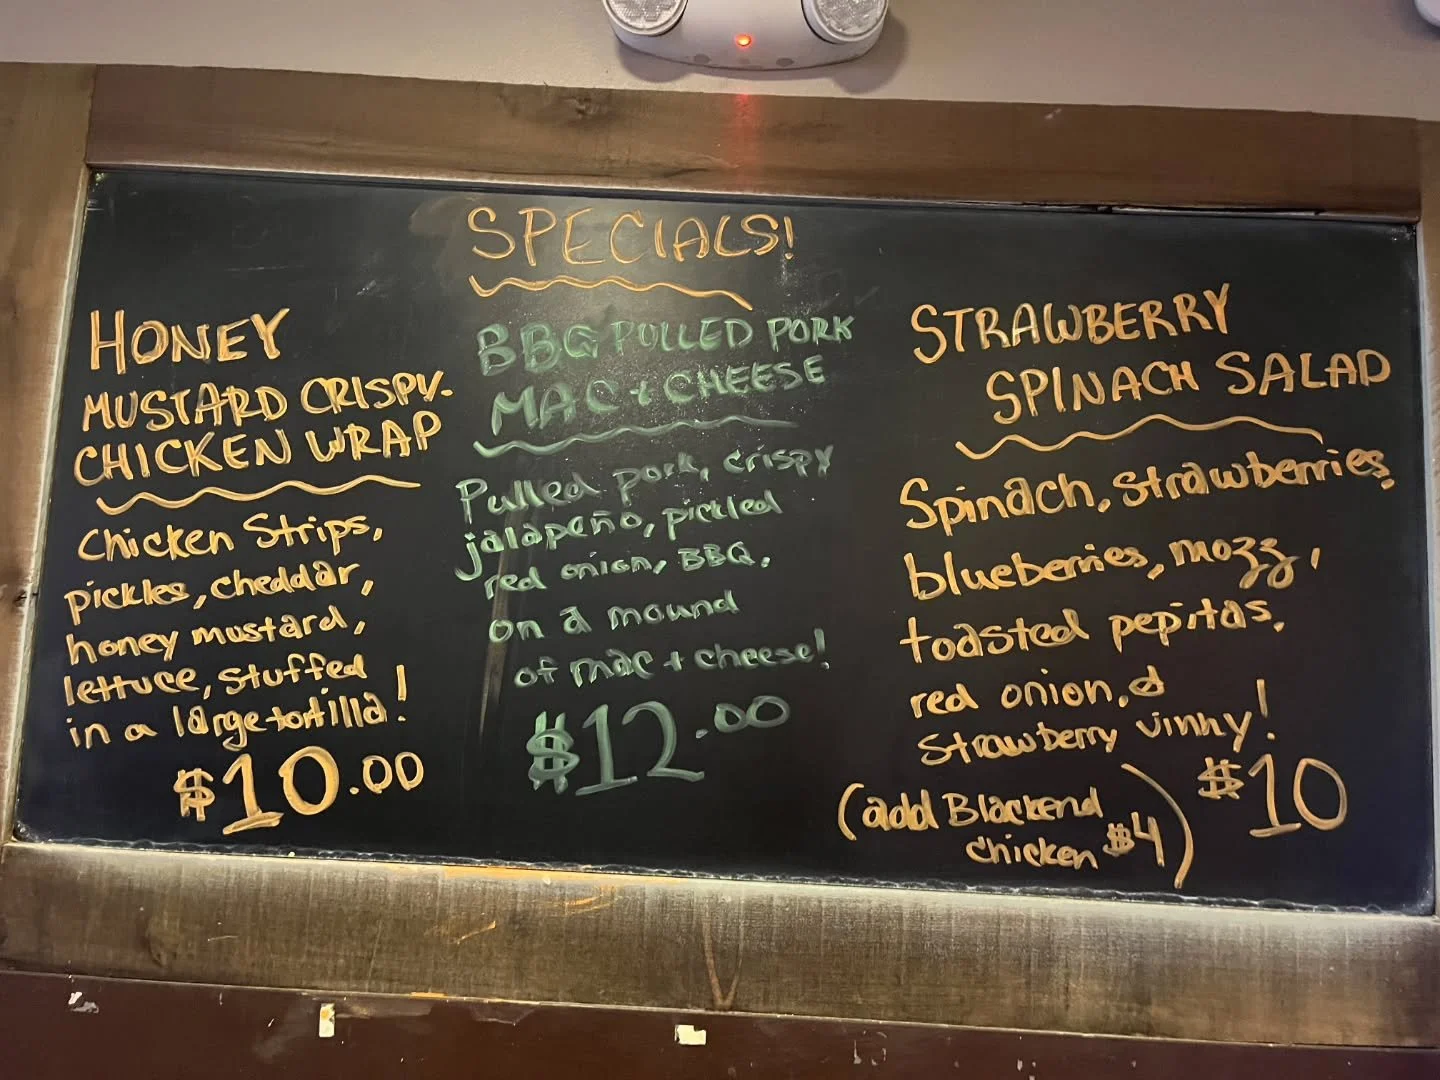 SPECIALS!
HONEY
MUSTARD CRISPY.
CHICKEN WRAP
Chicken Strips,
pickles, cheddar,
honey mustard,
lettuce, stuffed
in a large tortilla!
$10.00
BBQ PULLED PORK
MAC + CHEESE
Pulled pork, crispy
jalapeño, pickled
red onion, BBQ,
on a mound
of mac + cheese!
$12.00
STRAWBERRY
SPINACH SALAD
Spinach, strawberries,
blueberries, mozz,
toasted pepitas,
red onion, &
strawberry vinny!
$10
(add Blackend
chicken $4)